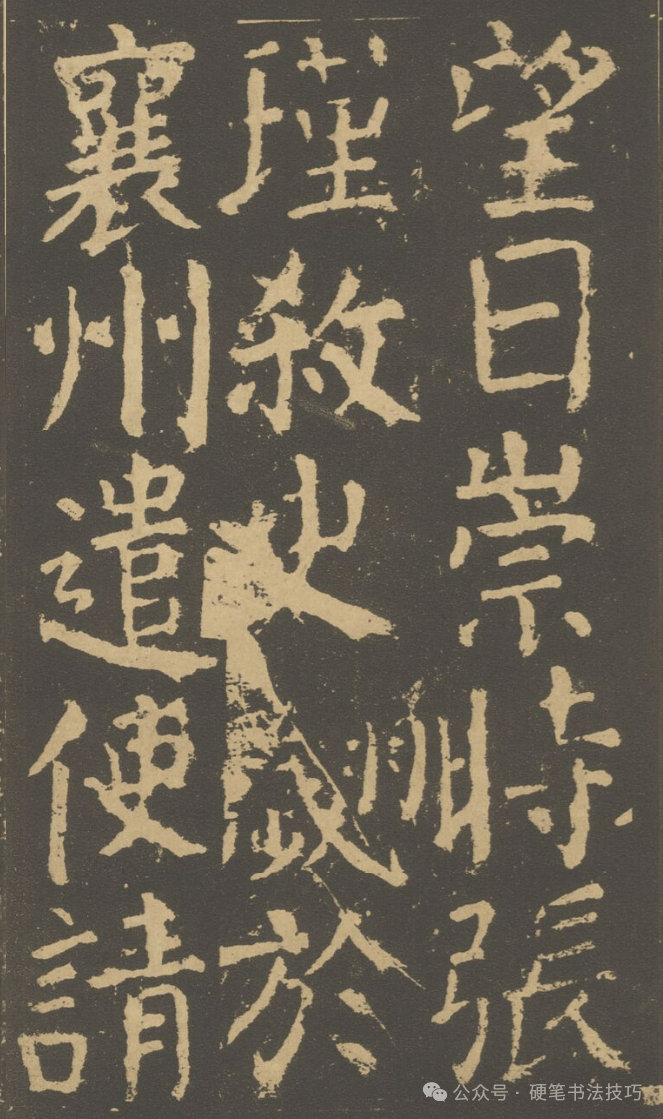 望日崇時張
瑾殺史翽於
襄州遣使請
公众号·硬笔书法技巧